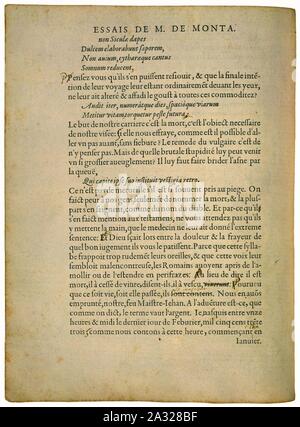 ESSAIS DE M. DE MONTA.
non Siculæ dapes
Dulcem elaborabunt saporem,
Non auium, cytharæque cantus
Somnum reducent,
Pensez vous qu'ils s'en puissent resiouir, & que la finale inten-
tion de leur voyage leur estant ordinairement deuant les yeux,
ne leur ait alteré & affadi le goust à toutes ces commoditez?
Audit iter, numeratque dies, spacioque viarum
Metitur vitam, torquetur peste futura.
Le but de nostre carriere c'est la mort, c'est l'obiect necessaire
de nostre visée: si elle nous effraye, comme est il possible d'al-
ler vn pas auant, sans fiebure? Le remede du vulgaire c'est de
n'y penser pas. Mais de quelle brutale stupidité luy peut venir
vn si grossier aueuglement? Il luy faut faire brider l'asne par
la queuë,
Qui capite ipse suo instituit vestigia retro.
Ce n'est pas de si est souuent pris au piege. On
faict peur de nommer la mort, & la plus-
part s'en du diable. Et par-ce qu'il
s'en faict mention aux testamens, ne vous attendez pas qu'ils
y mettent la main, que le medecin ne leur ait donné l'extreme
sentence: Et Dieu sçait lors entre la douleur & la frayeur de
quel bon iugement ils vous le patissent. Parce que cette sylla-
be frappoit trop rudement leurs oreilles, & que cette voix leur
sembloit malencontreuse, les Romains auoyent apris de l'amol-
lir ou de l'estendre en perifrazes. Au lieu de dire il est
mort, il a cessé de viure, disent-ils, il a vescu, Pourueu
que ce soit vie, soit elle passée, ils sont consens. Nous en auons
empruntè, nostre, feu Maistre-Iehan. A l'aduenture est-ce, que
comme on dict, le terme vaut l'argent. Ie nasquis entre vnze
heures & midi le dernier iour de Feburier, mil cinq cens trente
trois comme nous contons à cette heure, commençant en
Ianuier.
alamy
Image ID: 2A328BF
www.alamy.com